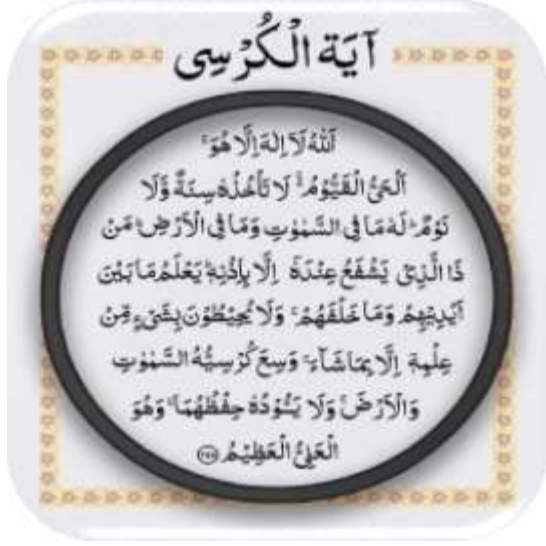 آيَة الْكُرْسِى
اَللّٰهُ لَاۤ اِلٰهَ اِلَّا هُوَۚ
اَلْحَیُّ الْقَیُّوْمُ ۚ لَا تَاْخُذُهٗ سِنَةٌ وَّلَا
نَوْمٌ ؕ لَهٗ مَا فِی السَّمٰوٰتِ وَمَا فِی الْاَرْضِ ؕ مَنْ
ذَا الَّذِیْ یَشْفَعُ عِنْدَهٗۤ اِلَّا بِاِذْنِهٖ ؕ یَعْلَمُ مَا بَیْنَ
اَیْدِیْهِمْ وَمَا خَلْفَهُمْ ۚ وَلَا یُحِیْطُوْنَ بِشَیْءٍ مِّنْ
عِلْمِهٖۤ اِلَّا بِمَا شَآءَ ۚ وَسِعَ كُرْسِیُّهُ السَّمٰوٰتِ
وَالْاَرْضَ ۚ وَلَا یَـُٔوْدُهٗ حِفْظُهُمَا ۚ وَهُوَ
الْعَلِیُّ الْعَظِیْمُ ﴿۲۵۵﴾